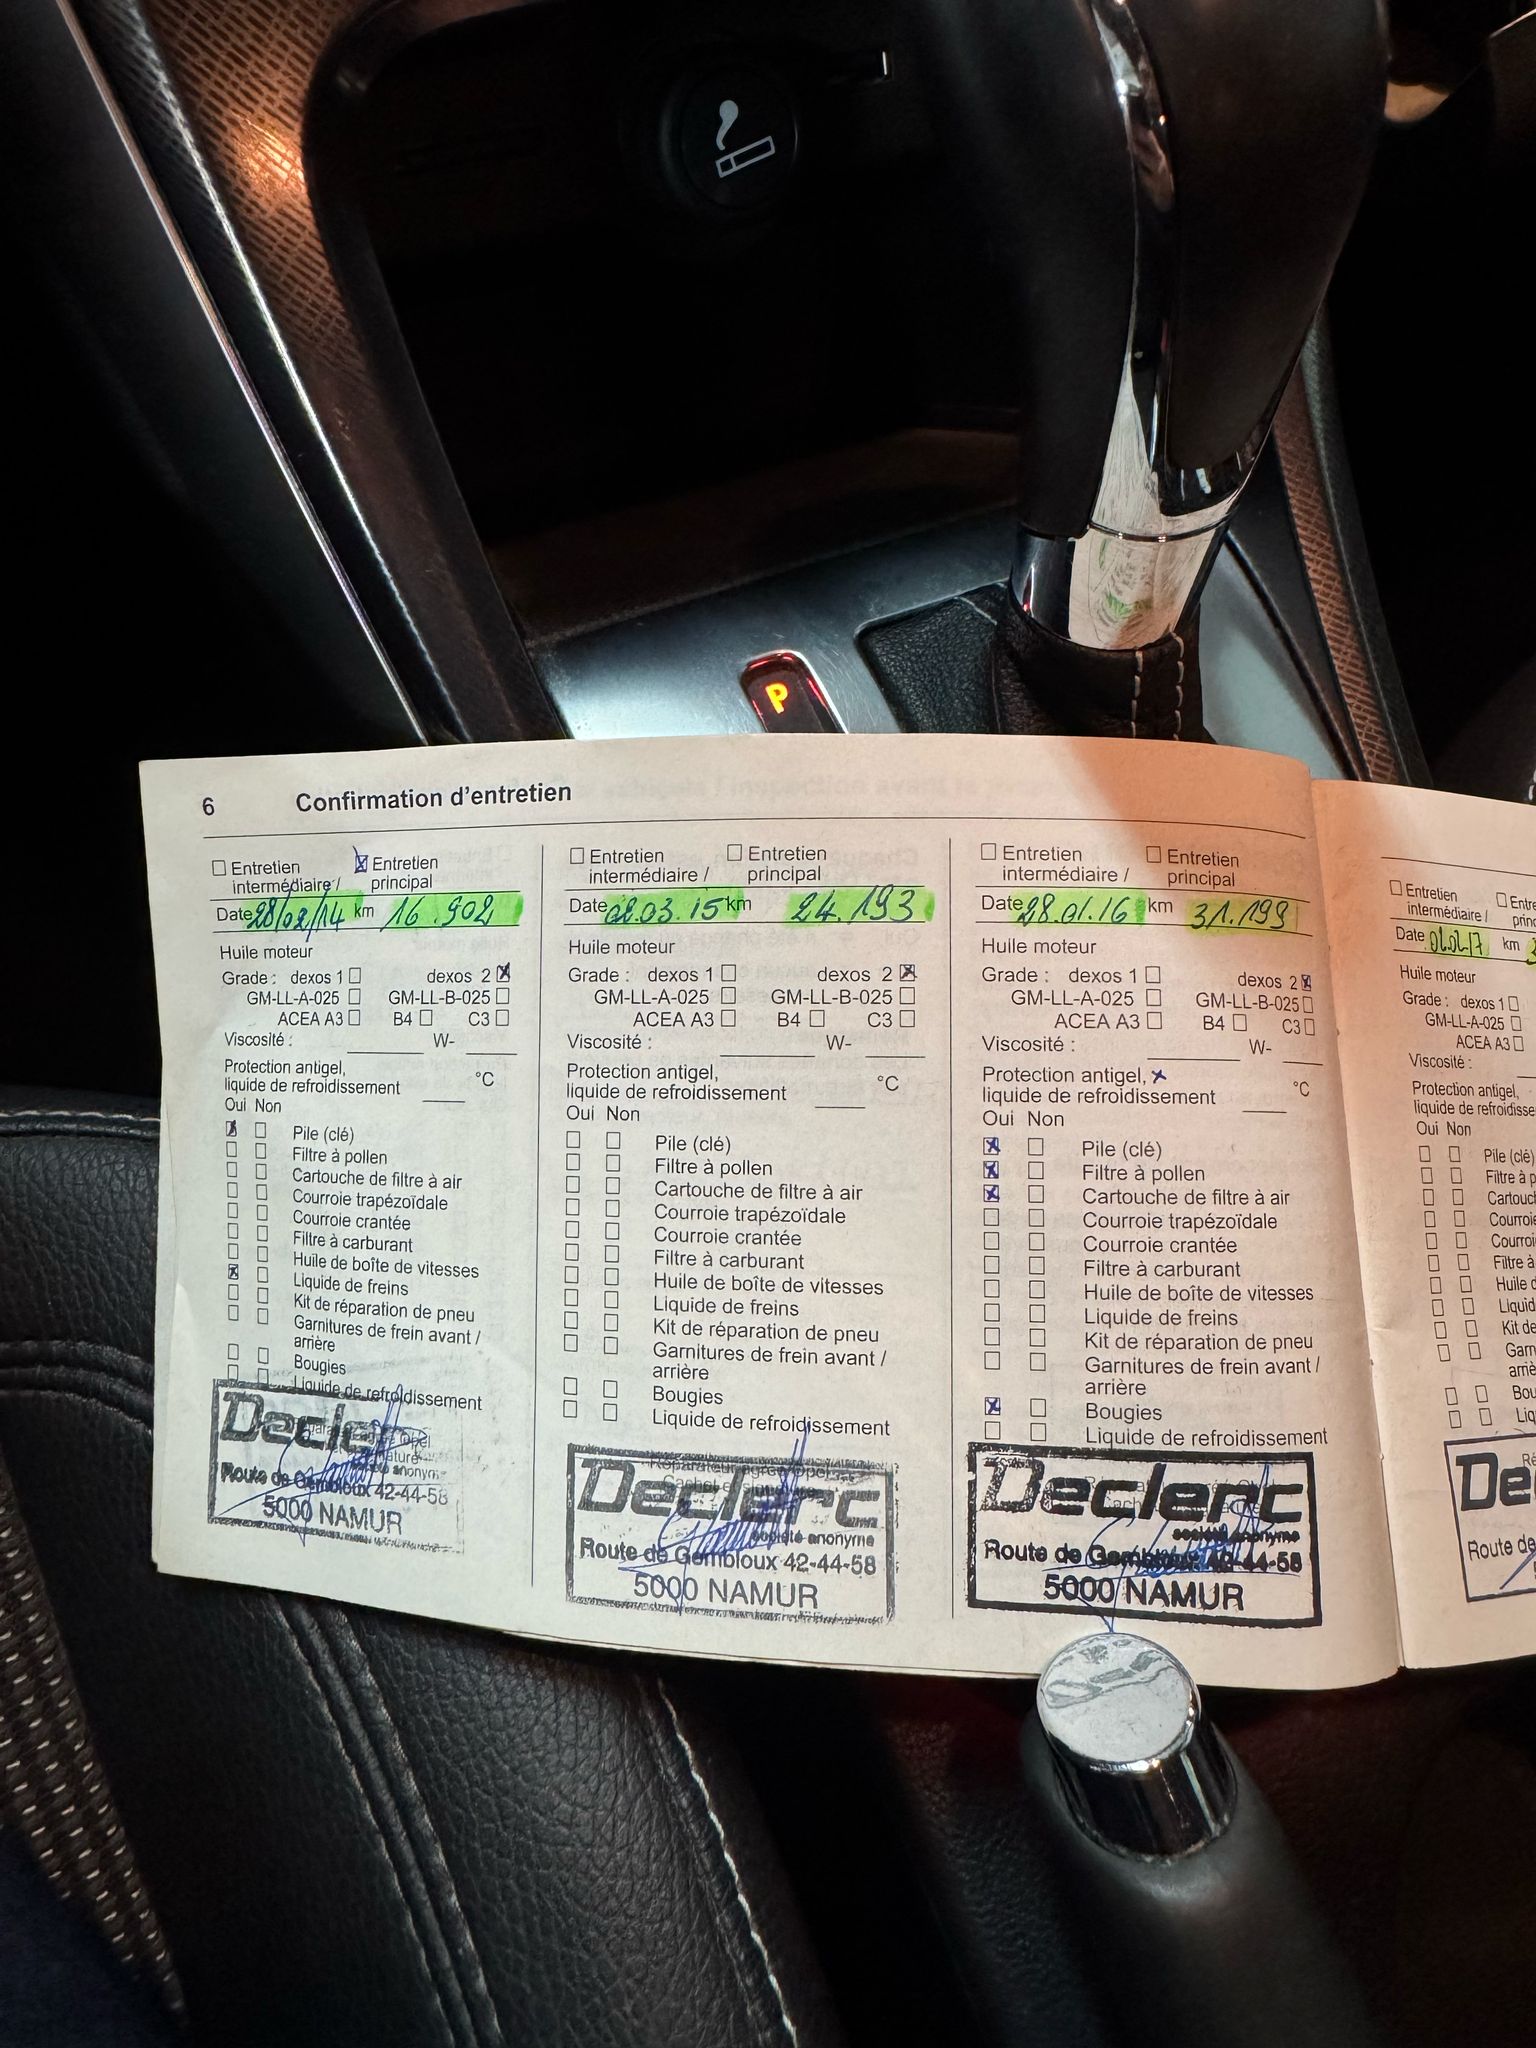 P
6 Confirmation d'entretien
Entretien intermédiaire /
Entretien principal
Date 28/02/14 km 16.902
Huile moteur
Grade : dexos 1 dexos 2
GM-LL-A-025 GM-LL-B-025
ACEA A3 B4 C3
Viscosité : W-
Protection antigel,
liquide de refroidissement °C
Oui Non
Pile (clé)
Filtre à pollen
Cartouche de filtre à air
Courroie trapézoïdale
Courroie crantée
Filtre à carburant
Huile de boîte de vitesses
Liquide de freins
Kit de réparation de pneu
Garnitures de frein avant /
arrière
Bougies
Liquide de refroidissement
Declerc
Route de Gembloux 42-44-58
5000 NAMUR
Entretien intermédiaire /
Entretien principal
Date 02.03.15 km 24.193
Huile moteur
Grade : dexos 1 dexos 2
GM-LL-A-025 GM-LL-B-025
ACEA A3 B4 C3
Viscosité : W-
Protection antigel,
liquide de refroidissement °C
Oui Non
Pile (clé)
Filtre à pollen
Cartouche de filtre à air
Courroie trapézoïdale
Courroie crantée
Filtre à carburant
Huile de boîte de vitesses
Liquide de freins
Kit de réparation de pneu
Garnitures de frein avant /
arrière
Bougies
Liquide de refroidissement
Declerc
société anonyme
Route de Gembloux 42-44-58
5000 NAMUR
Entretien intermédiaire /
Entretien principal
Date 28.01.16 km 31.199
Huile moteur
Grade : dexos 1 dexos 2
GM-LL-A-025 GM-LL-B-025
ACEA A3 B4 C3
Viscosité : W-
Protection antigel,
liquide de refroidissement °C
Oui Non
Pile (clé)
Filtre à pollen
Cartouche de filtre à air
Courroie trapézoïdale
Courroie crantée
Filtre à carburant
Huile de boîte de vitesses
Liquide de freins
Kit de réparation de pneu
Garnitures de frein avant /
arrière
Bougies
Liquide de refroidissement
Declerc
société anonyme
Route de Gembloux 42-44-58
5000 NAMUR
Entretien
intermédiaire /
Date km
Huile moteur
Grade : dexos 1
GM-LL-A-025
ACEA A3
Viscosité :
Protection antigel,
Oui Non
Pile (clé)
Route de